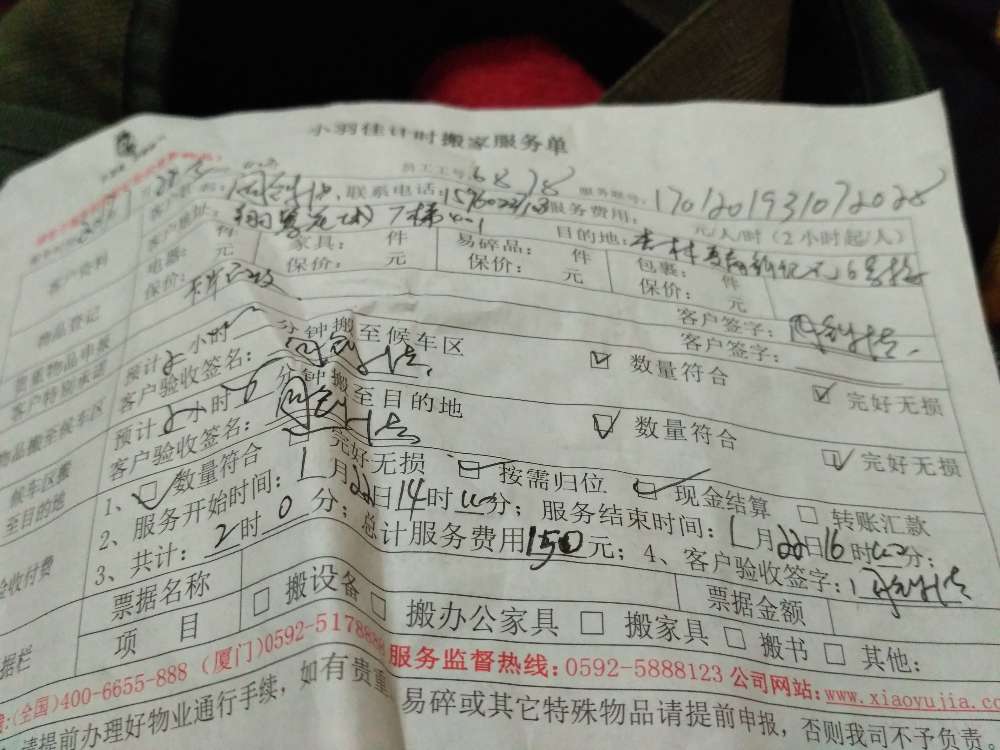 小羽佳计时搬家服务单
员工工号: 6878 服务账号: 1701201931072028
联系电话: 服务费用: 元/人/时（2小时起/人）
客户资料 客户地址: 7栋 目的地:
电器: 件 家具: 件 易碎品: 件 包裹: 件
保价: 元 保价: 元 保价: 元 保价: 元
物品登记 客户签字:
贵重物品申报 客户签字:
客户特殊承诺
物品搬至候车区 预计2小时 分钟搬至候车区 ☑ 数量符合 ☑ 完好无损
客户验收签名:
候车区搬至目的地 预计2小时0分钟搬至目的地 ☑ 数量符合 ☑ 完好无损
客户验收签名:
验收付费 1、☑ 数量符合 □ 完好无损 ☑ 按需归位 ☑ 现金结算 □ 转账汇款
2、服务开始时间: 1月22日14时00分; 服务结束时间: 1月22日16时00分;
3、共计: 2时0分; 总计服务费用150元; 4、客户验收签字:
票据栏 票据名称 票据金额
项目 □ 搬设备 □ 搬办公家具 □ 搬家具 □ 搬书 □ 其他:
(全国)400-6655-888 (厦门)0592-5178888 服务监督热线: 0592-5888123 公司网站: www.xiaoyujia.com
请提前办理好物业通行手续, 如有贵重、易碎或其它特殊物品请提前申报, 否则我司不予负责